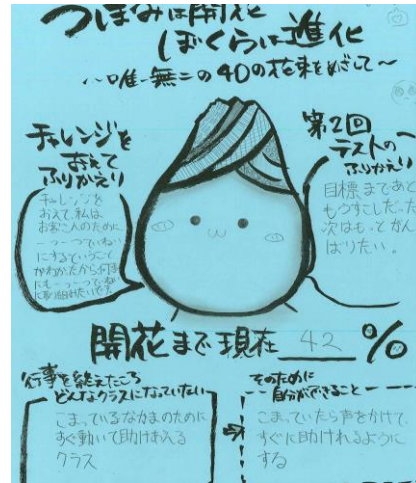 つぼみは開花
ぼくらは進化
～唯一無二の40の花束をめざして～
チャレンジを
おえて
ふりかえり
チャレンジを
おえて、私は
お客さんのために
一つ一つていねい
にするということ
がわかったから何事
にも一つ一つ
第2回
テストの
ふりかえり
目標まであと
もうすこしだった
次はもっとがん
ばりたい。
開花まで現在 42 %
行事を終えたころ
どんなクラスになっていたい
こまっているなかまのために
すぐ動いて助け
クラス
そのために
自分ができること
こまっていたら声をかけて、
すぐに助けれるように
する